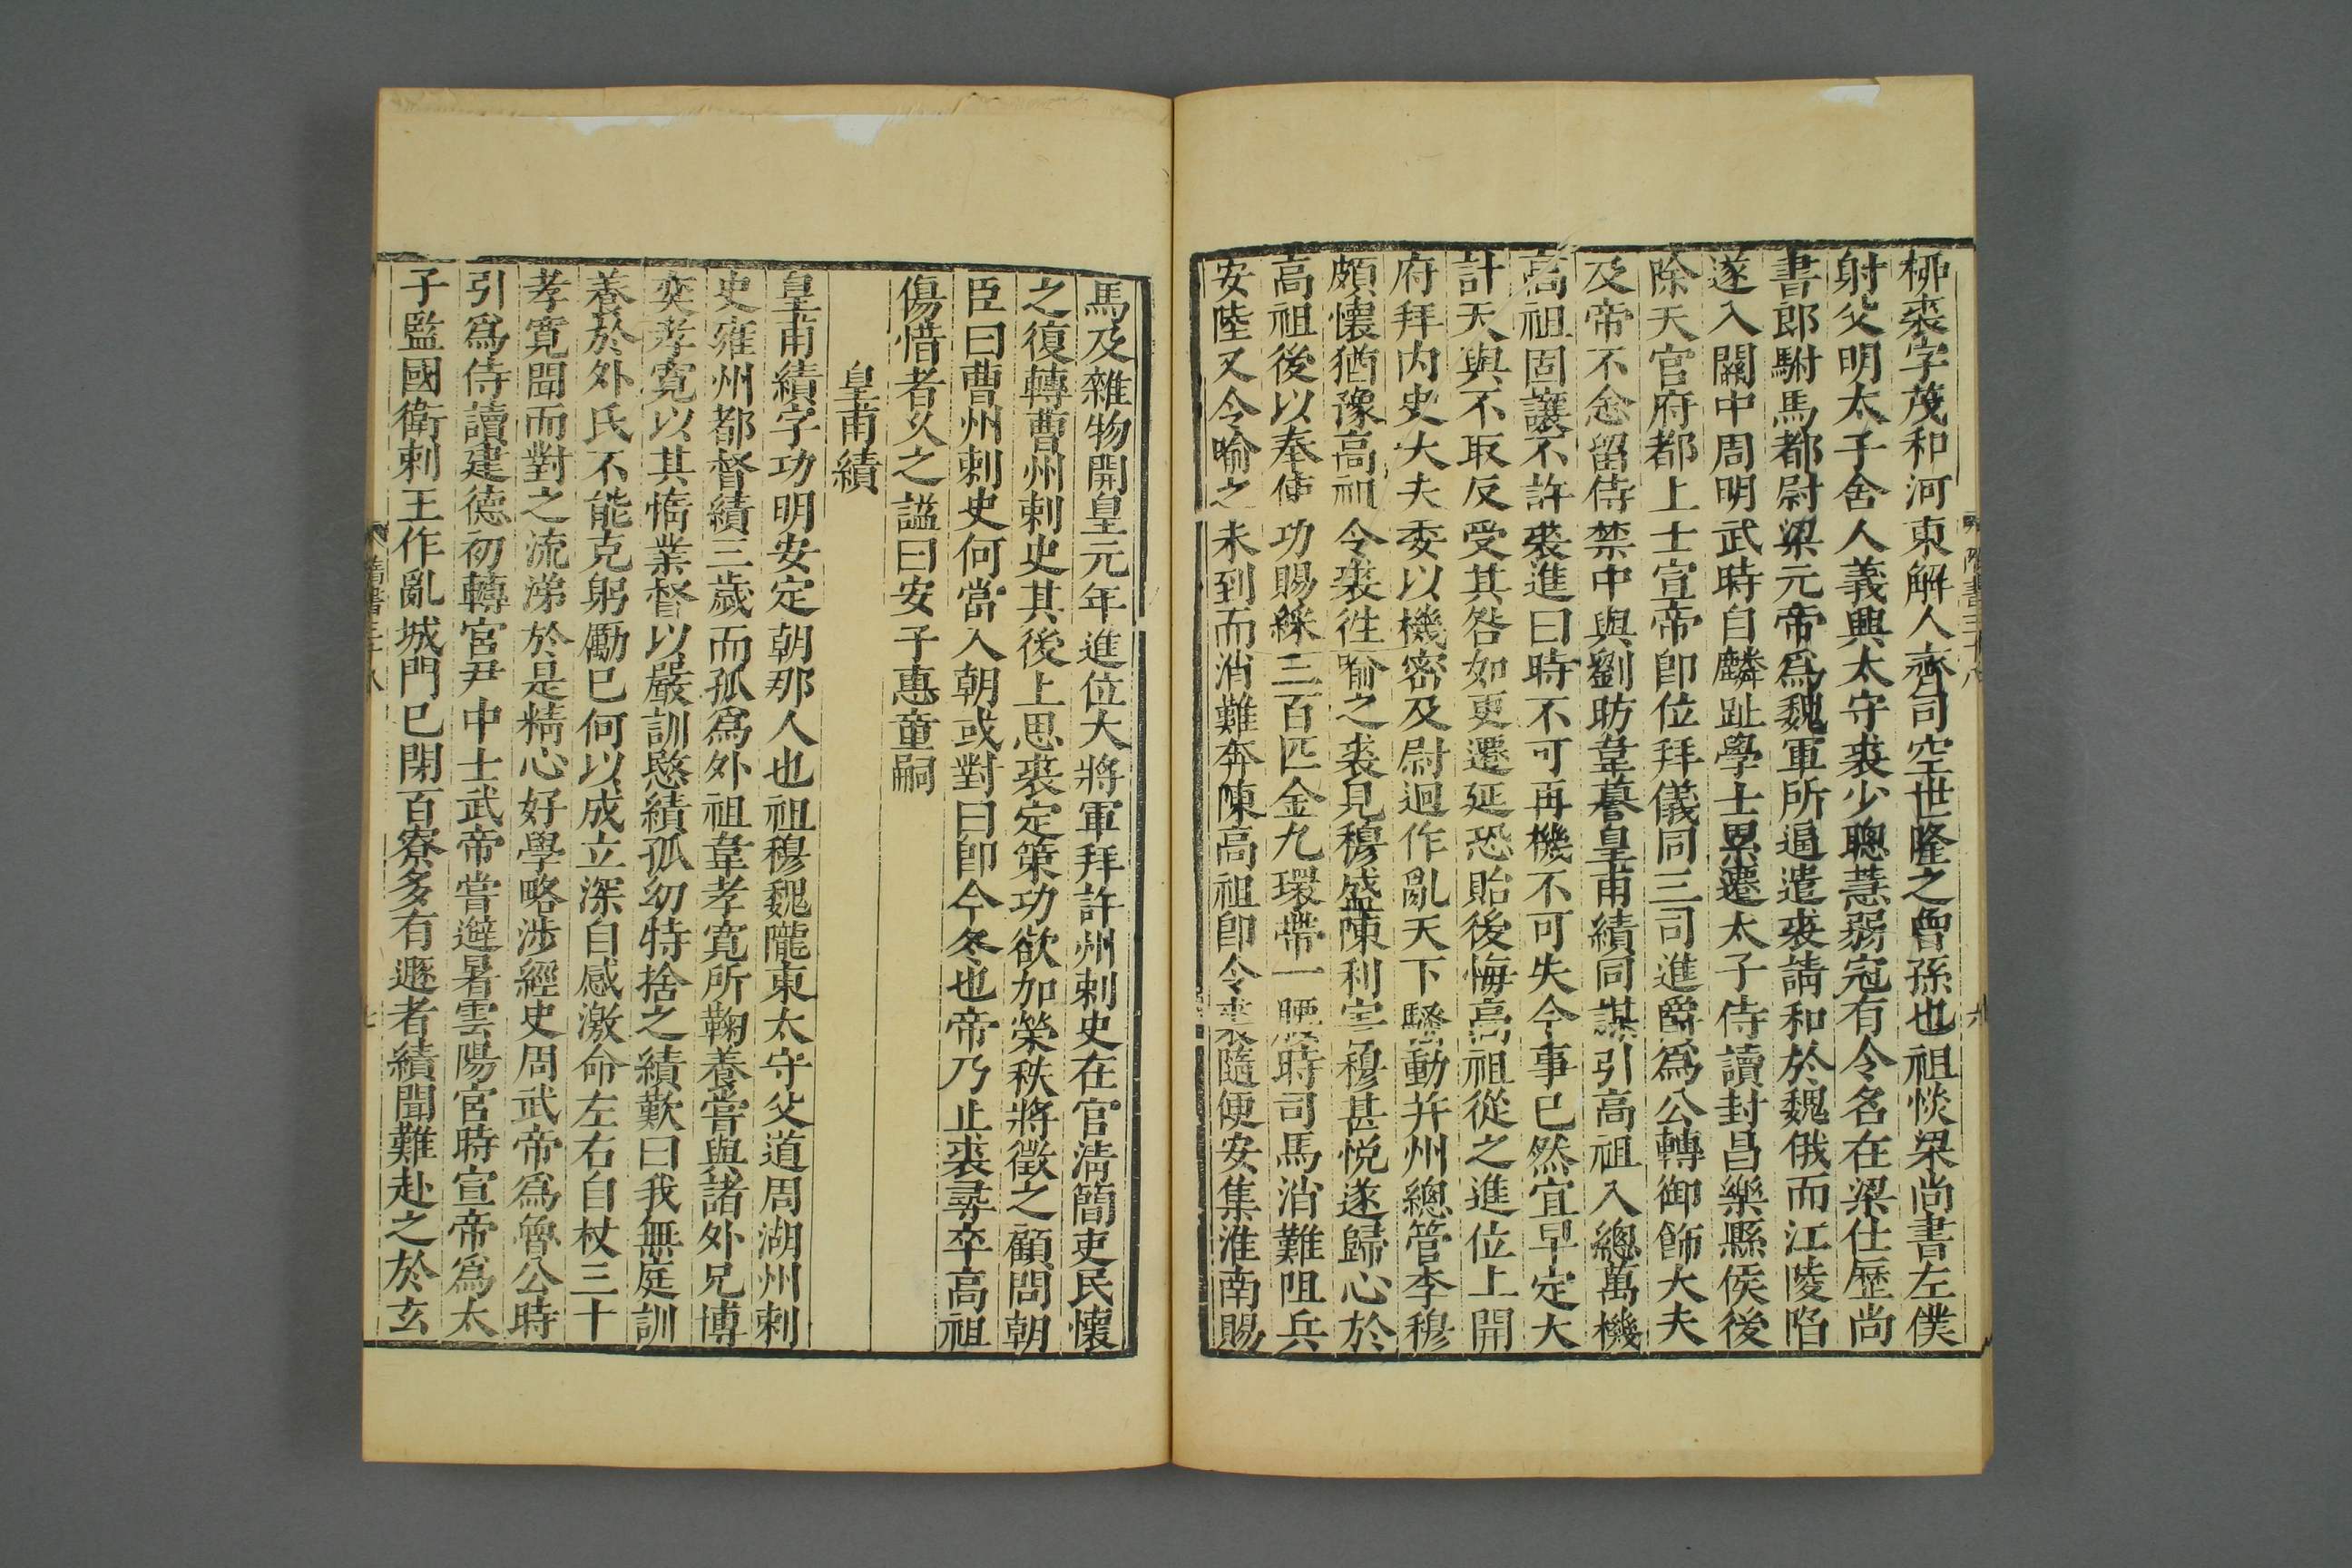 柳裘字茂和河東解人齊司空世隆之曾孫也祖惔梁尚書左僕
射父明太子舍人義興太守裘少聰慧弱冠有令名在梁仕歷尚
書郎駙馬都尉梁元帝爲魏軍所逼遣裘請和於魏俄而江陵陷
遂入關中周明武時自麟趾學士累遷太子侍讀封昌樂縣侯後
除天官府都上士宣帝即位拜儀同三司進爵爲公轉御飾大夫
及帝不悆留侍禁中與劉昉韋謩皇甫績同謀引高祖入總萬機
高祖固讓不許裘進曰時不可再機不可失今事已然宜早定大
計天與不取反受其咎如更遷延恐貽後悔高祖從之進位上開
府拜内史大夫委以機密及尉迥作亂天下騷動并州總管李穆
頗懷猶豫高祖令裘徃喻之裘見穆盛陳利害穆甚悦遂歸心於
高祖後以奉使功賜綵三百匹金九環帶一腰時司馬消難阻兵
安陸又令喻之未到而消難奔陳高祖即令裘隨便安集淮南賜
馬及雜物開皇元年進位大將軍拜許州刺史在官清簡吏民懷
之復轉曹州刺史其後上思裘定策功欲加榮秩將徵之顧問朝
臣曰曹州刺史何當入朝或對曰即今冬也帝乃止裘尋卒高祖
傷惜者乆之謚曰安子惠童嗣
皇甫績
皇甫績字功明安定朝那人也祖穆魏隴東太守父道周湖州刺
史雍州都督績三歲而孤爲外祖韋孝寛所鞠養嘗與諸外兄博
奕孝寛以其惰業督以嚴訓愍績孤幼特捨之績歎曰我無庭訓
養於外氏不能克躬勵已何以成立深自感激命左右自杖三十
孝寛聞而對之流涕於是精心好學略涉經史周武帝爲魯公時
引爲侍讀建德初轉宮尹中士武帝嘗避暑雲陽宮時宣帝爲太
子監國衛刺王作亂城門已閉百寮多有遯者績聞難赴之於玄